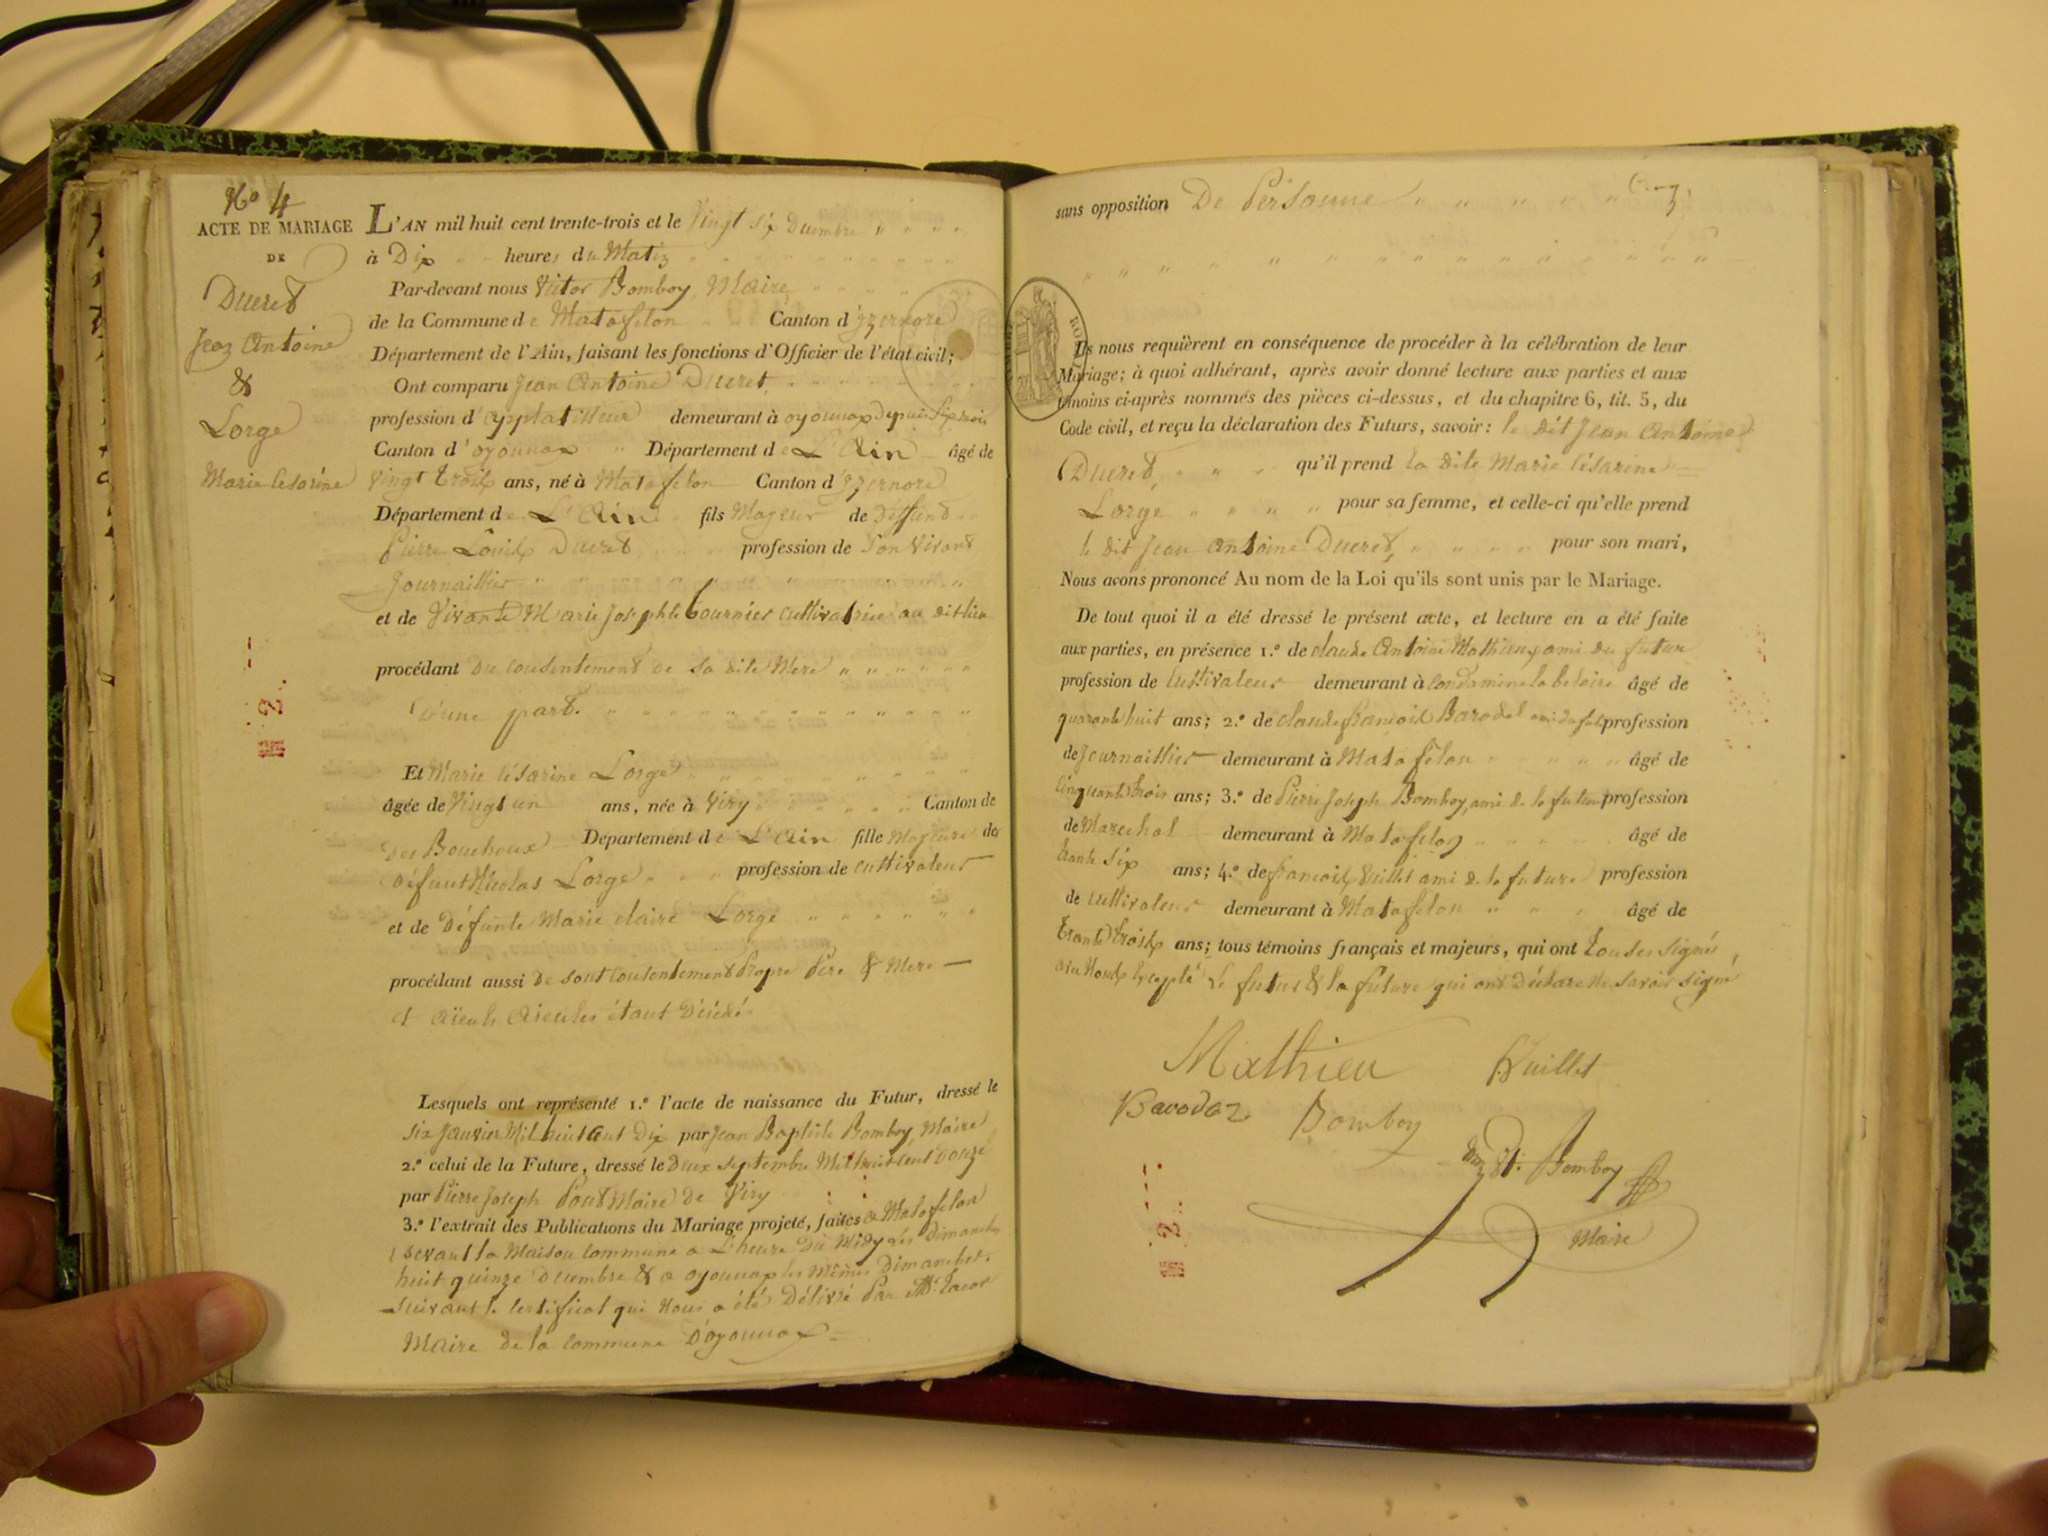 No 4
ACTE DE MARIAGE
DE
Ducret
Jean Antoine
&
Lorge
Marie Césarine
L'AN mil huit cent trente-trois et le Vingt six Décembre
à Dix heures du Matin
Par-devant nous Victor Bomboy, Maire
de la Commune de Matafelon Canton d'yzernore
Département de l'Ain, faisant les fonctions d'Officier de l'état civil;
Ont comparu Jean Antoine Ducret
profession d' demeurant à oyonnax depuis Six mois
Canton d'oyonnax Département de L'Ain âgé de
Vingt troix ans, né à Matafelon Canton d'yzernore
Département de L'Ain fils Majeur de Deffunt
Pierre Louix Ducret profession de Son vivant
Journaillier
et de Vivante Marie Josephte cultivatrice au dit lieu
procédant du consentement de sa dite Mere
d'une part.
Et Marie Césarine Lorge
âgée de Vingt un ans, née à Viry Canton de
des Bouchoux Departement de L'Ain fille Majeure de
défunt Nicolas Lorge profession de cultivateur
et de Défunte Marie claire Lorge
procédant aussi de sont contentement Propre Père & Mere
et aïeuls aïeules étant Décédé
Lesquels ont représenté 1.º l'acte de naissance du Futur, dressé le
six Janvier Mil huit Cent Dix par Jean Baptiste Bomboy, Maire
2.º celui de la Future, dressé le Deux septembre Mil huit Cent Douze
par Pierre Joseph Maire de Viry
3.º l'extrait des Publications du Mariage projeté, faites a Matafelon
Devant la Maison commune a L'heure du Midy les Dimanches
huit quinze Decembre & a oyonnax les Mêmes Dimanches.
suivant le Certificat qui nous a été Délivré Par Mr
Maire de la commune D'oyonnax
sans opposition De Personne
Ils nous requièrent en conséquence de procéder à la célébration de leur
Mariage; à quoi adhérant, après avoir donné lecture aux parties et aux
témoins ci-après nommés des pièces ci-dessus, et du chapitre 6, tit. 5, du
Code civil, et reçu la déclaration des Futurs, savoir: le dit Jean Antoine
Ducret, qu'il prend la dite Marie Césarine
Lorge pour sa femme, et celle-ci qu'elle prend
le dit Jean Antoine Ducret, pour son mari,
Nous avons prononcé Au nom de la Loi qu'ils sont unis par le Mariage.
De tout quoi il a été dressé le présent acte, et lecture en a été faite
aux parties, en présence 1.º de claude Antoine ami du futur
profession de Cultivateur demeurant à condamine la belaire âgé de
quarante huit ans; 2.º de claude francoix ami du fut profession
de Journaillier demeurant à Matafelon âgé de
Cinquante trois ans; 3.º de Pierre Joseph Bomboy, ami de la future profession
de Marechal demeurant à Matafelon âgé de
trante six ans; 4.º de francoix Vuillet ami de la future profession
de cultivateur demeurant à Matafelon âgé de
trante troix ans; tous témoins français et majeurs, qui ont Tous signés
avec Nous Excepté Le futur & la future qui ont Déclaré Ne savoir signé
Mathieu Vuillet
Bomboy
Bomboy
Maire